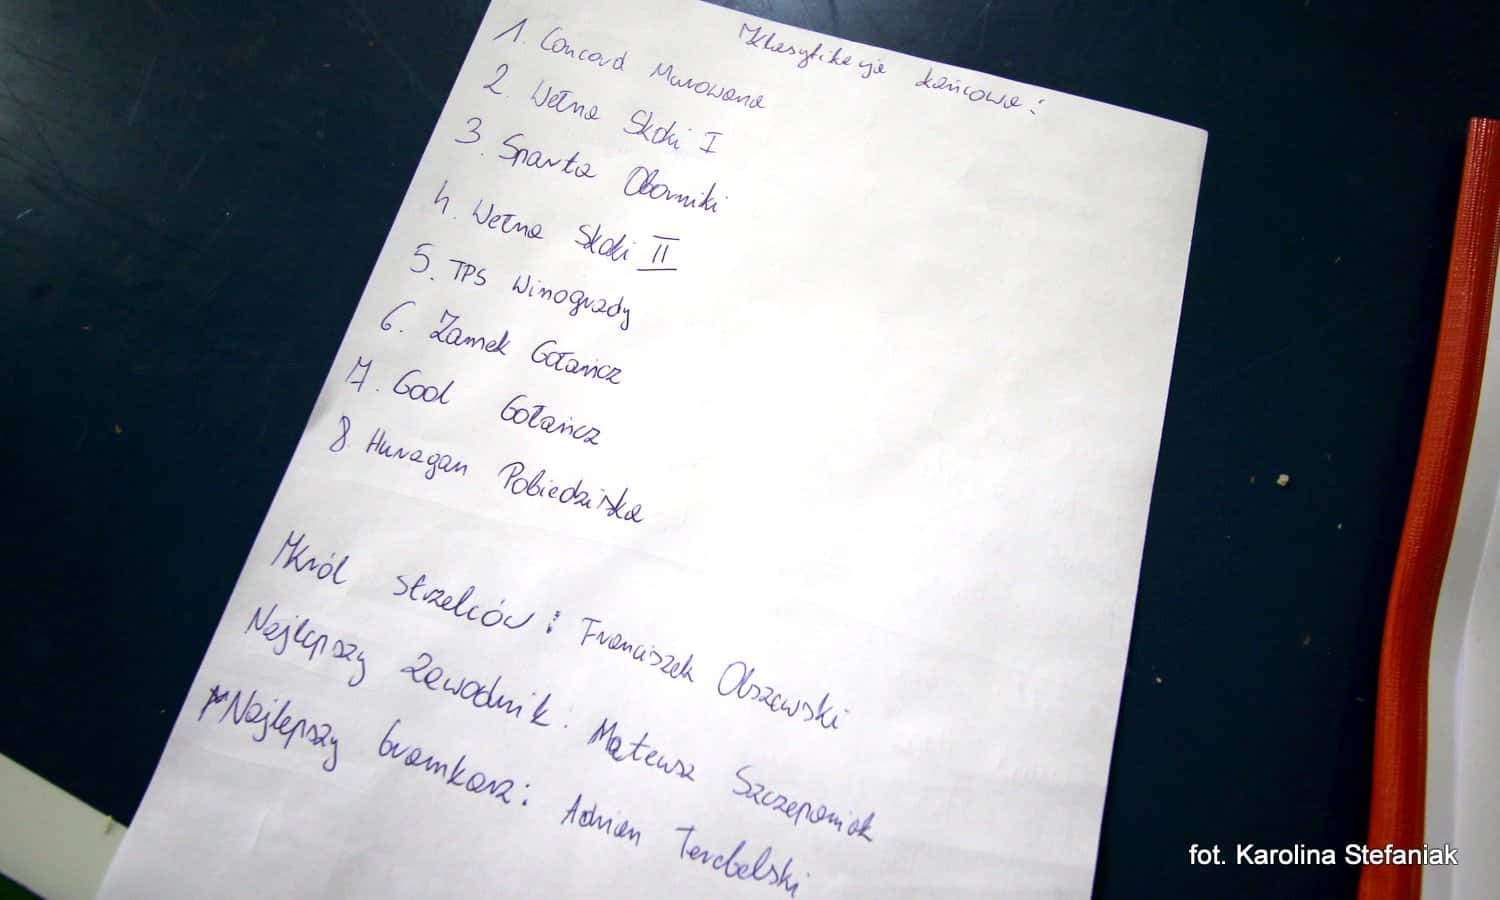 Klasyfikacja końcowa:
1. Concord Murowana
2. Wełna Skoki I
3. Sparta Oborniki
4. Wełna Skoki II
5. TPS Winogrady
6. Zamek Gołańcz
7. Gool Gołańcz
8. Huragan Pobiedziska
Król strzelców: Franciszek Olszewski
Najlepszy zawodnik: Mateusz Szczepaniak
Najlepszy bramkarz: Adrian
fot. Karolina Stefaniak